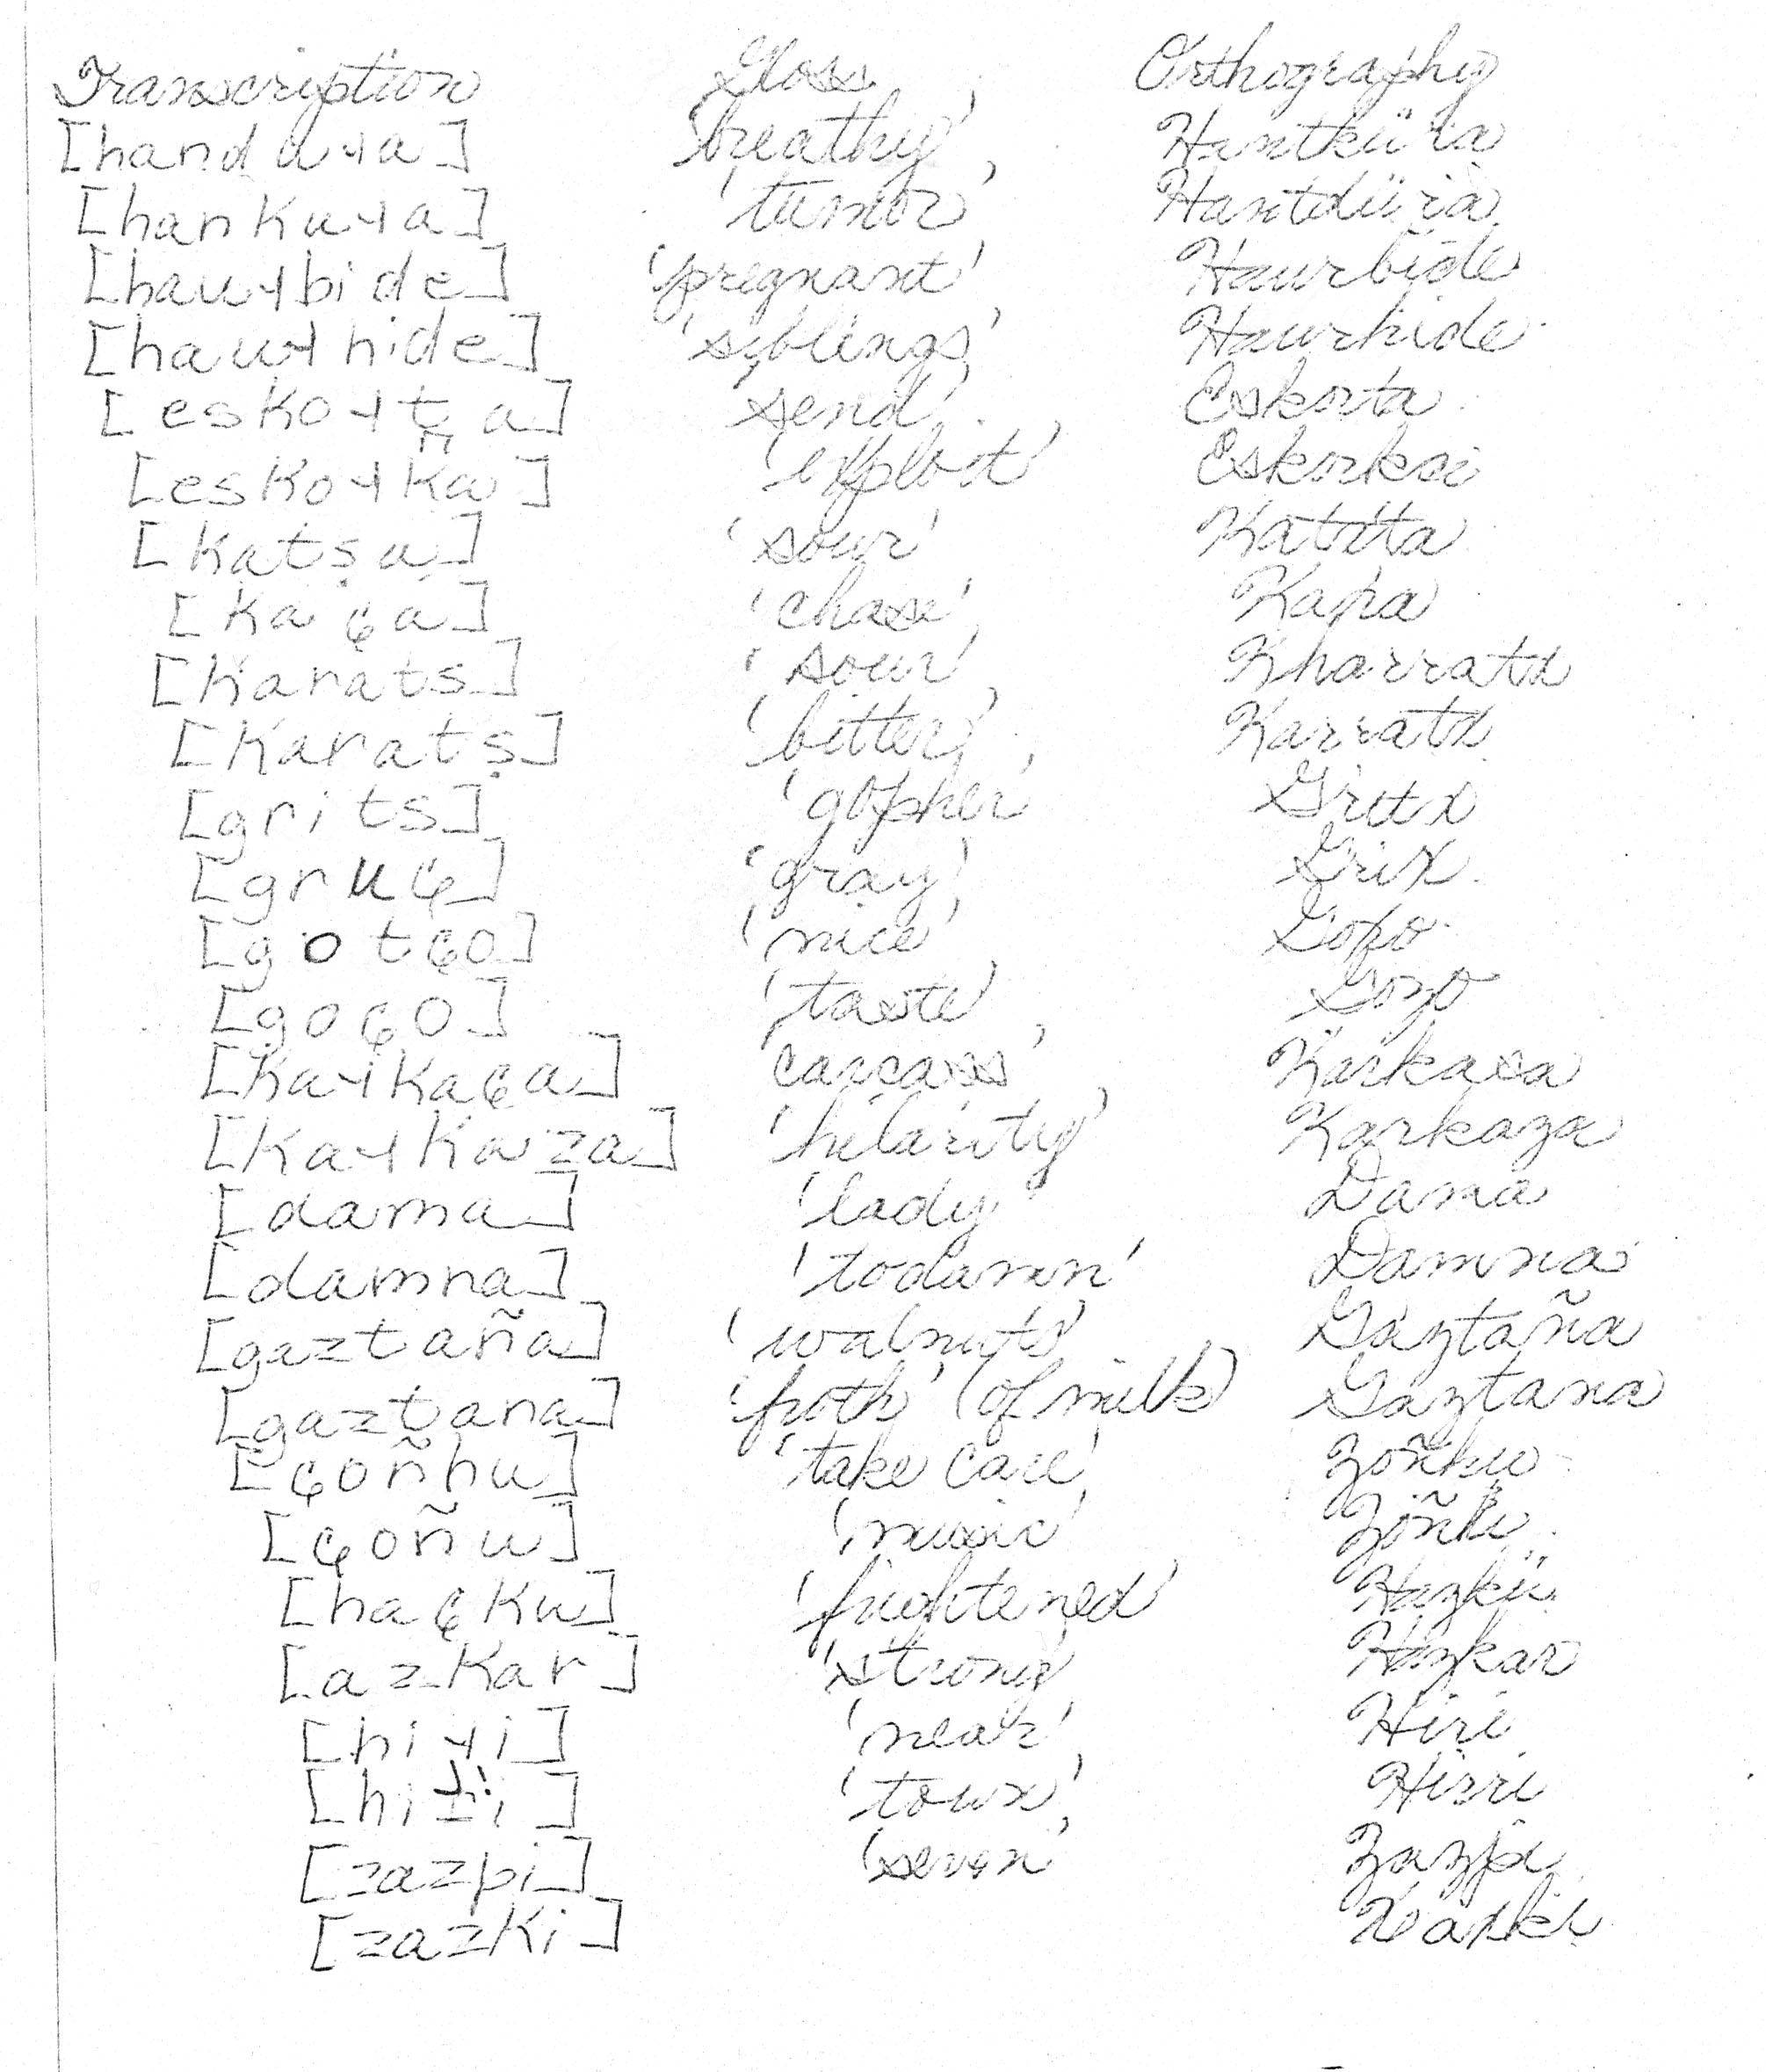 Transcription Gloss Orthography
[handuɹa] 'breathy' Hantküra
[hankuɹa] 'tumor' Hantdüra
[hauɹbide] 'pregnant' Haurbide
[hauɹhide] 'siblings' Haurhide
[eskoɹt̪a] 'send' Eskorta
[eskoɹka] 'exploit' Eskorkai
[katṣa] 'sour'
[kaça] 'chase'
[karats] 'sour' Kharratx
[karatṣ] 'bitter' Karratx
[grits] 'gopher'
[gruç] 'gray' Grix
[gotço] 'nice'
[goço] 'taste' Gozo
[kaɹkaça] 'carcass' Karkasa
[kaɹkaza] 'hilarity' Karkaza
[dama] 'lady' Dama
[damna] 'to damn' Damna
[gaztaña] 'walnuts' Gaztaña
[gaztana] 'froth' (of milk) Gaztana
[çoñhu] 'take care' Zoñhu
[çoñu] 'music' Zoñü
[haçku] 'frightened' Hazkü
[azkar] 'strong' Hazkar
[hiɹi] 'near' Hiri
'town' Hirri
[zazpi] 'seven' Zazpi
[zazki]